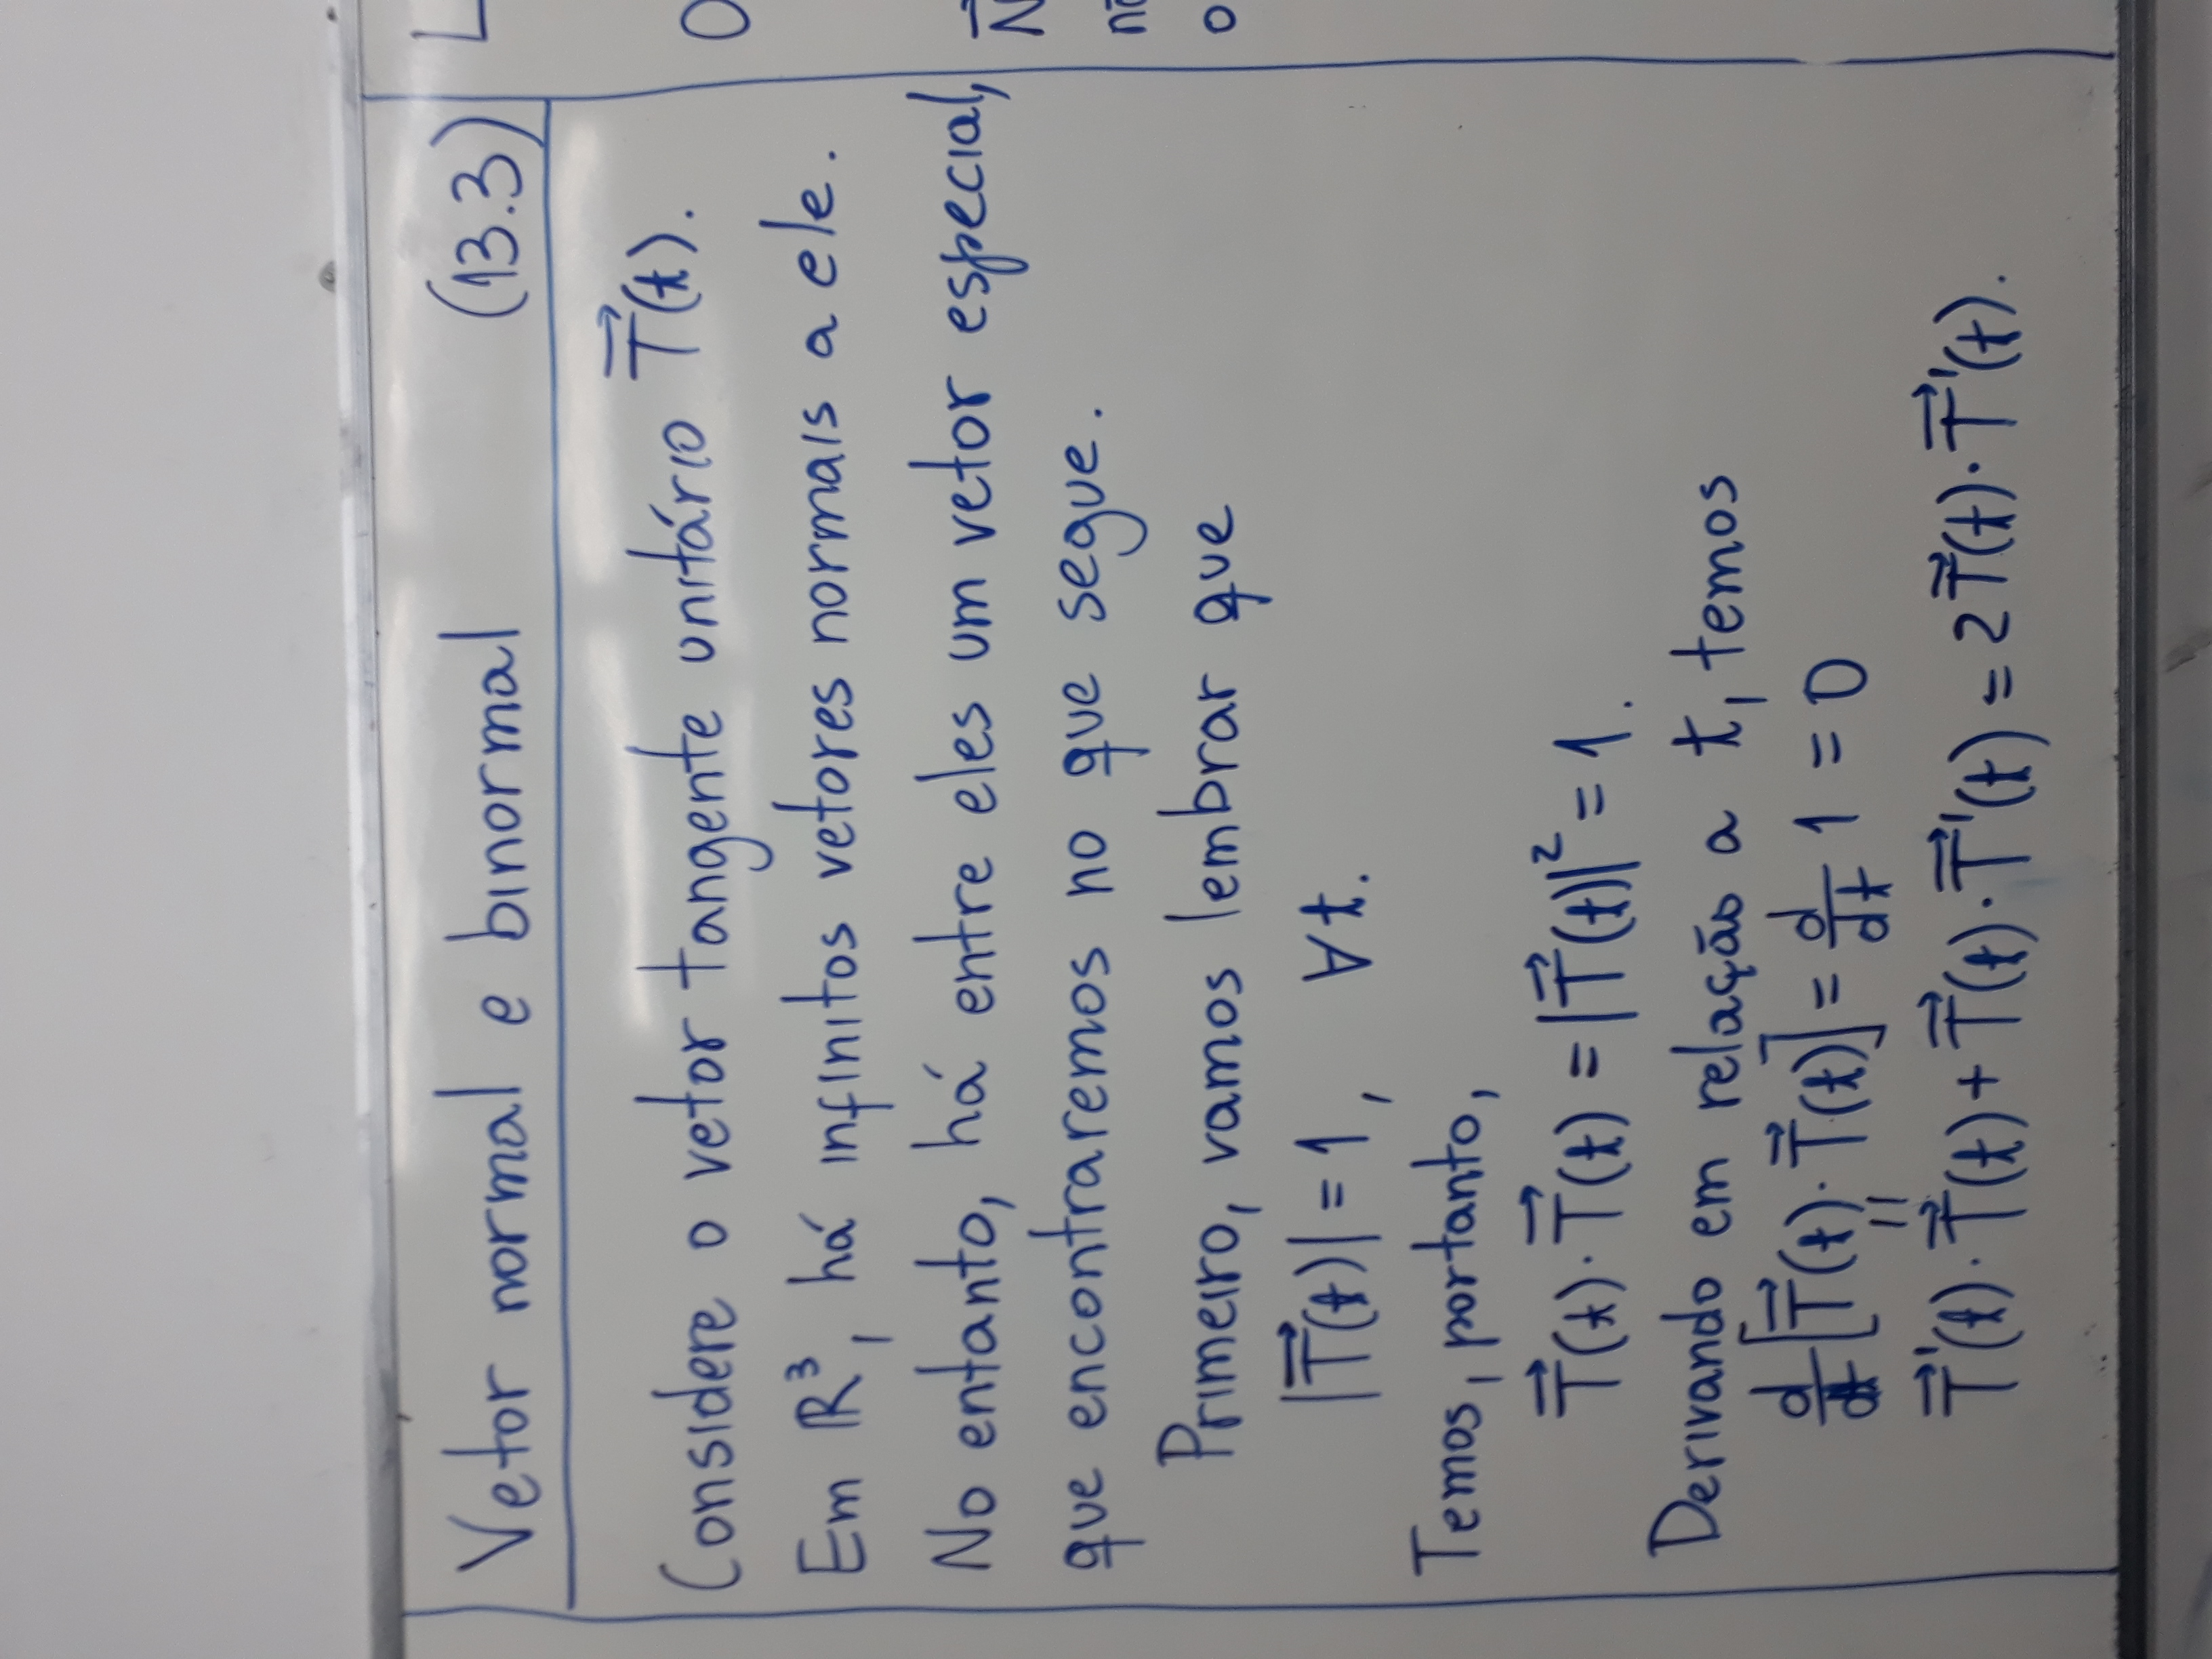 Vetor normal e binormal (13.3)
Considere o vetor tangente unitário \vec{T}(t).
Em ℝ³, há infinitos vetores normais a ele.
No entanto, há entre eles um vetor especial,
que encontraremos no que segue.
Primeiro, vamos lembrar que
|\vec{T}(t)| = 1, ∀t.
Temos, portanto,
\vec{T}(t)·\vec{T}(t) = |\vec{T}(t)|² = 1.
Derivando em relação a t, temos
d/dt [\vec{T}(t)·\vec{T}(t)] = d/dt 1 = 0
||
\vec{T}'(t)·\vec{T}(t) + \vec{T}(t)·\vec{T}'(t) = 2\vec{T}(t)·\vec{T}'(t).